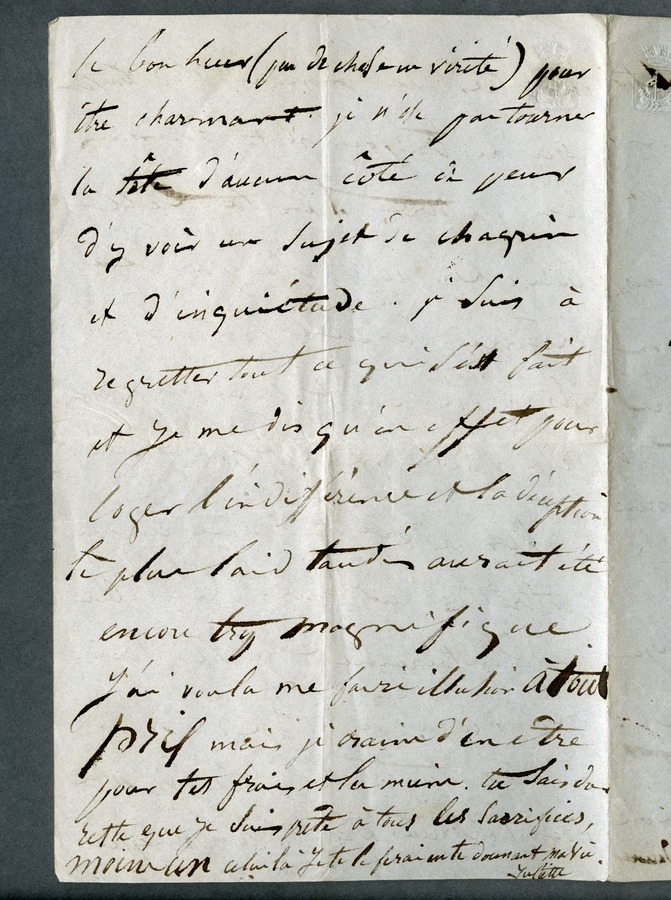 le bonheur (peu de chose en vérité) pour
être charmant. je n'ose pas tourner
la tête d'aucun côté de peur
d'y voir un sujet de chagrin
et d'inquiétude. je suis à
regretter tout ce qui s'est fait
et je me dis qu'en effet pour
loger l'indifférence et la déception
le plus laid taudis aurait été
encore trop magnifique
J'ai voulu me faire illusion à tout
prix mais je crains d'en être
pour tes frais et les miens. tu sais du
reste que je suis prête à tous les sacrifices,
moins un celui là je te le ferai en te donnant ma vie.
Juliette